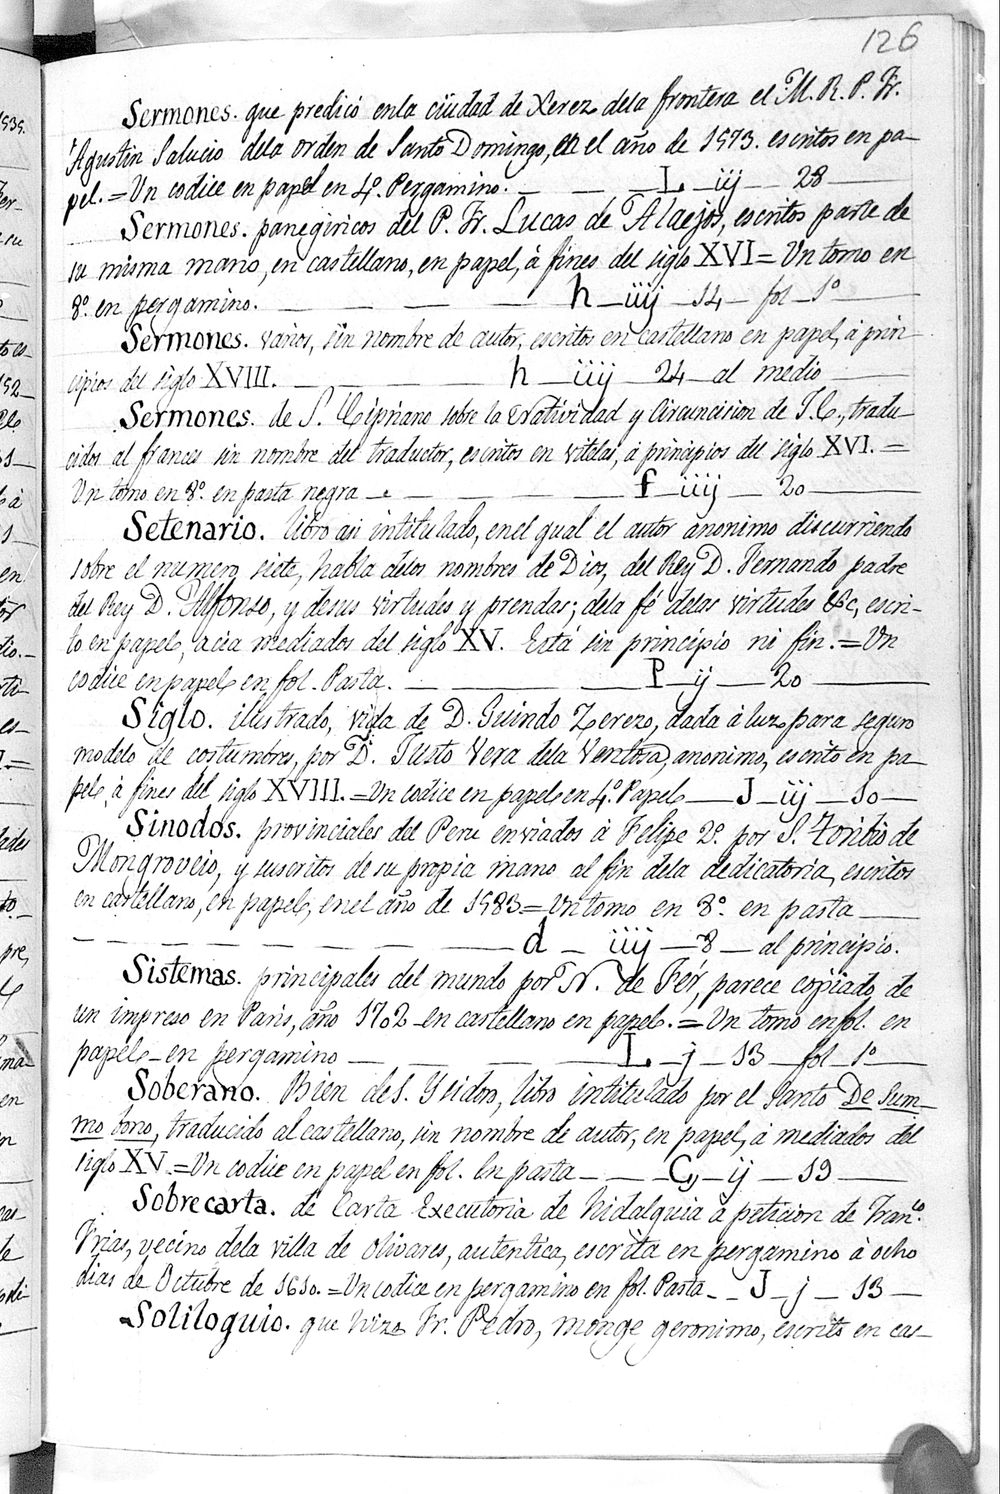 126
Sermones. que predicó enla ciudad de Xerez dela frontera el M. R. P. Fr.
Agustin Salucio dela orden de Santo Domingo, en el año de 1573. escritos en pa-
pel. = Un codice en papel en 4º. Pergamino. — — — L — iij — 28 —
Sermones. panegiricos del P. Fr. Lucas de Alaejos, escritos parte de
su misma mano, en castellano, en papel, á fines del siglo XVI = Un tomo en
8º. en pergamino. — — — — h — iiij — 14 — fol — 1º
Sermones. varios, sin nombre de autor, escritos en castellano en papel, á prin-
cipios del siglo XVIII. — — — — h — iiij — 24 — al medio —
Sermones. de S. Cipriano sobre la Natividad y Circuncision de J. C., tradu-
cidos al frances sin nombre del traductor, escritos en vitelas, á principios del siglo XVI. =
Un tomo en 8º. en pasta negra — — — — f — iiij — 20 —
Setenario. libro asi intitulado, enel qual el autor anonimo discurriendo
sobre el numero siete, habla delos nombres de Dios, del Rey D. Fernando padre
del Rey D. Alfonso, y desus virtudes y prendas; dela fé delas virtudes &c, escri-
to en papel, acia mediados del siglo XV. Está sin principio ni fin. = Un
codice en papel en fol. Pasta. — — — P — ij — 20 —
Siglo. ilustrado, vida de D. Guindo Zerezo, dada á luz para seguro
modelo de costumbres, por D. Justo Vera dela Ventosa, anonimo, escrito en pa-
pel, á fines del siglo XVIII. = Un codice en papel en 4º. Papel — J — iij — 10 —
Sinodos. provinciales del Peru enviados á Felipe 2º. por S. Toribio de
Mongrovejo, y suscritos de su propia mano al fin dela dedicatoria, escritos
en castellano, en papel, enel año de 1583 = Un tomo en 8º. en pasta —
— — — — — d — iiij — 8 — al principio.
Sistemas. principales del mundo por N. de Fér, parece copiado de
un impreso en Paris, año 1702 — en castellano en papel. = Un tomo en fol. en
papel — en pergamino — — — L — j — 13 — fol — 1º —
Soberano. Bien de S. Ysidro, libro intitulado por el Santo De Sum-
mo bono, traducido al castellano, sin nombre de autor, en papel, á mediados del
siglo XV. = Un codice en papel en fol. En pasta — — — C, — ij — 19 —
Sobrecarta. de Carta Executoria de hidalguia á peticion de Franco.
Frias, vecino dela villa de Olivares, autentica, escrita en pergamino á ocho
dias de Octubre de 1610. = Un codice en pergamino en fol. Pasta — — J — j — 13 —
Soliloquio. que hizo Fr. Pedro, monge geronimo, escrito en cas-